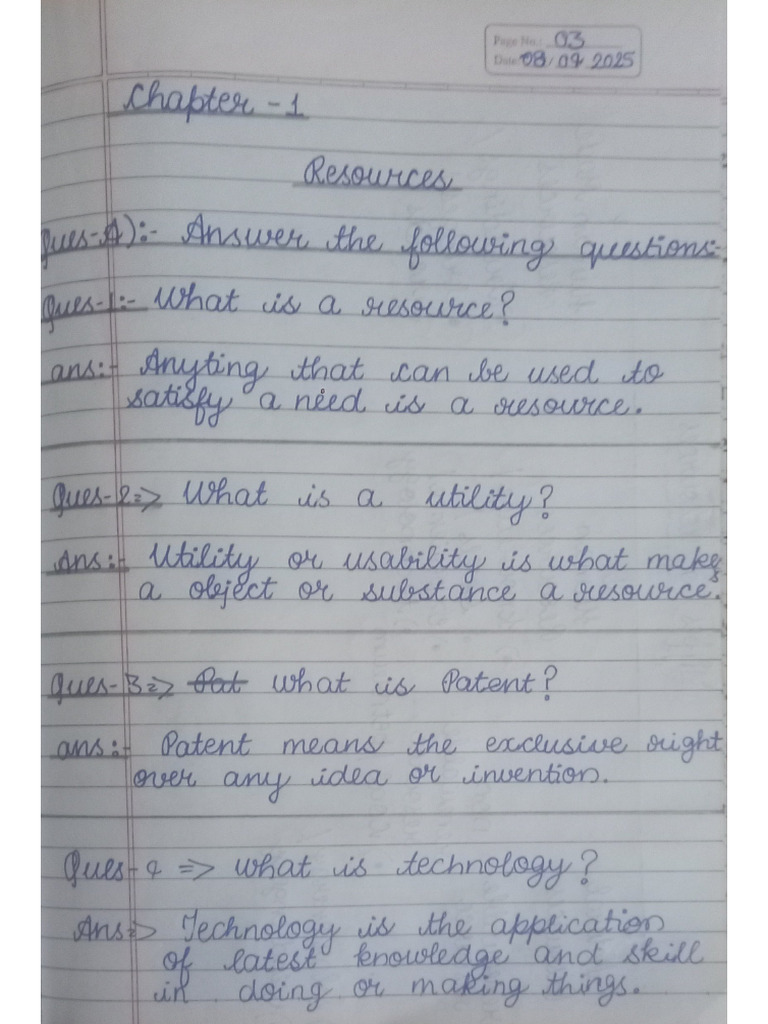 Page No.: 03
Date: 08/09 2025
Chapter - 1
Resources
Ques-A):- Answer the following questions:-
Ques-1:- What is a resource?
ans:- Anyting that can be used to
satisfy a need is a resource.
Ques-2=> What is a utility?
Ans:- Utility or usability is what makes
a object or substance a resource.
Ques-3=> Pat what is Patent?
ans:- Patent means the exclusive right
over any idea or invention.
Ques-4 => what is technology?
Ans=> Technology is the application
of latest knowledge and skill
in doing or making things.